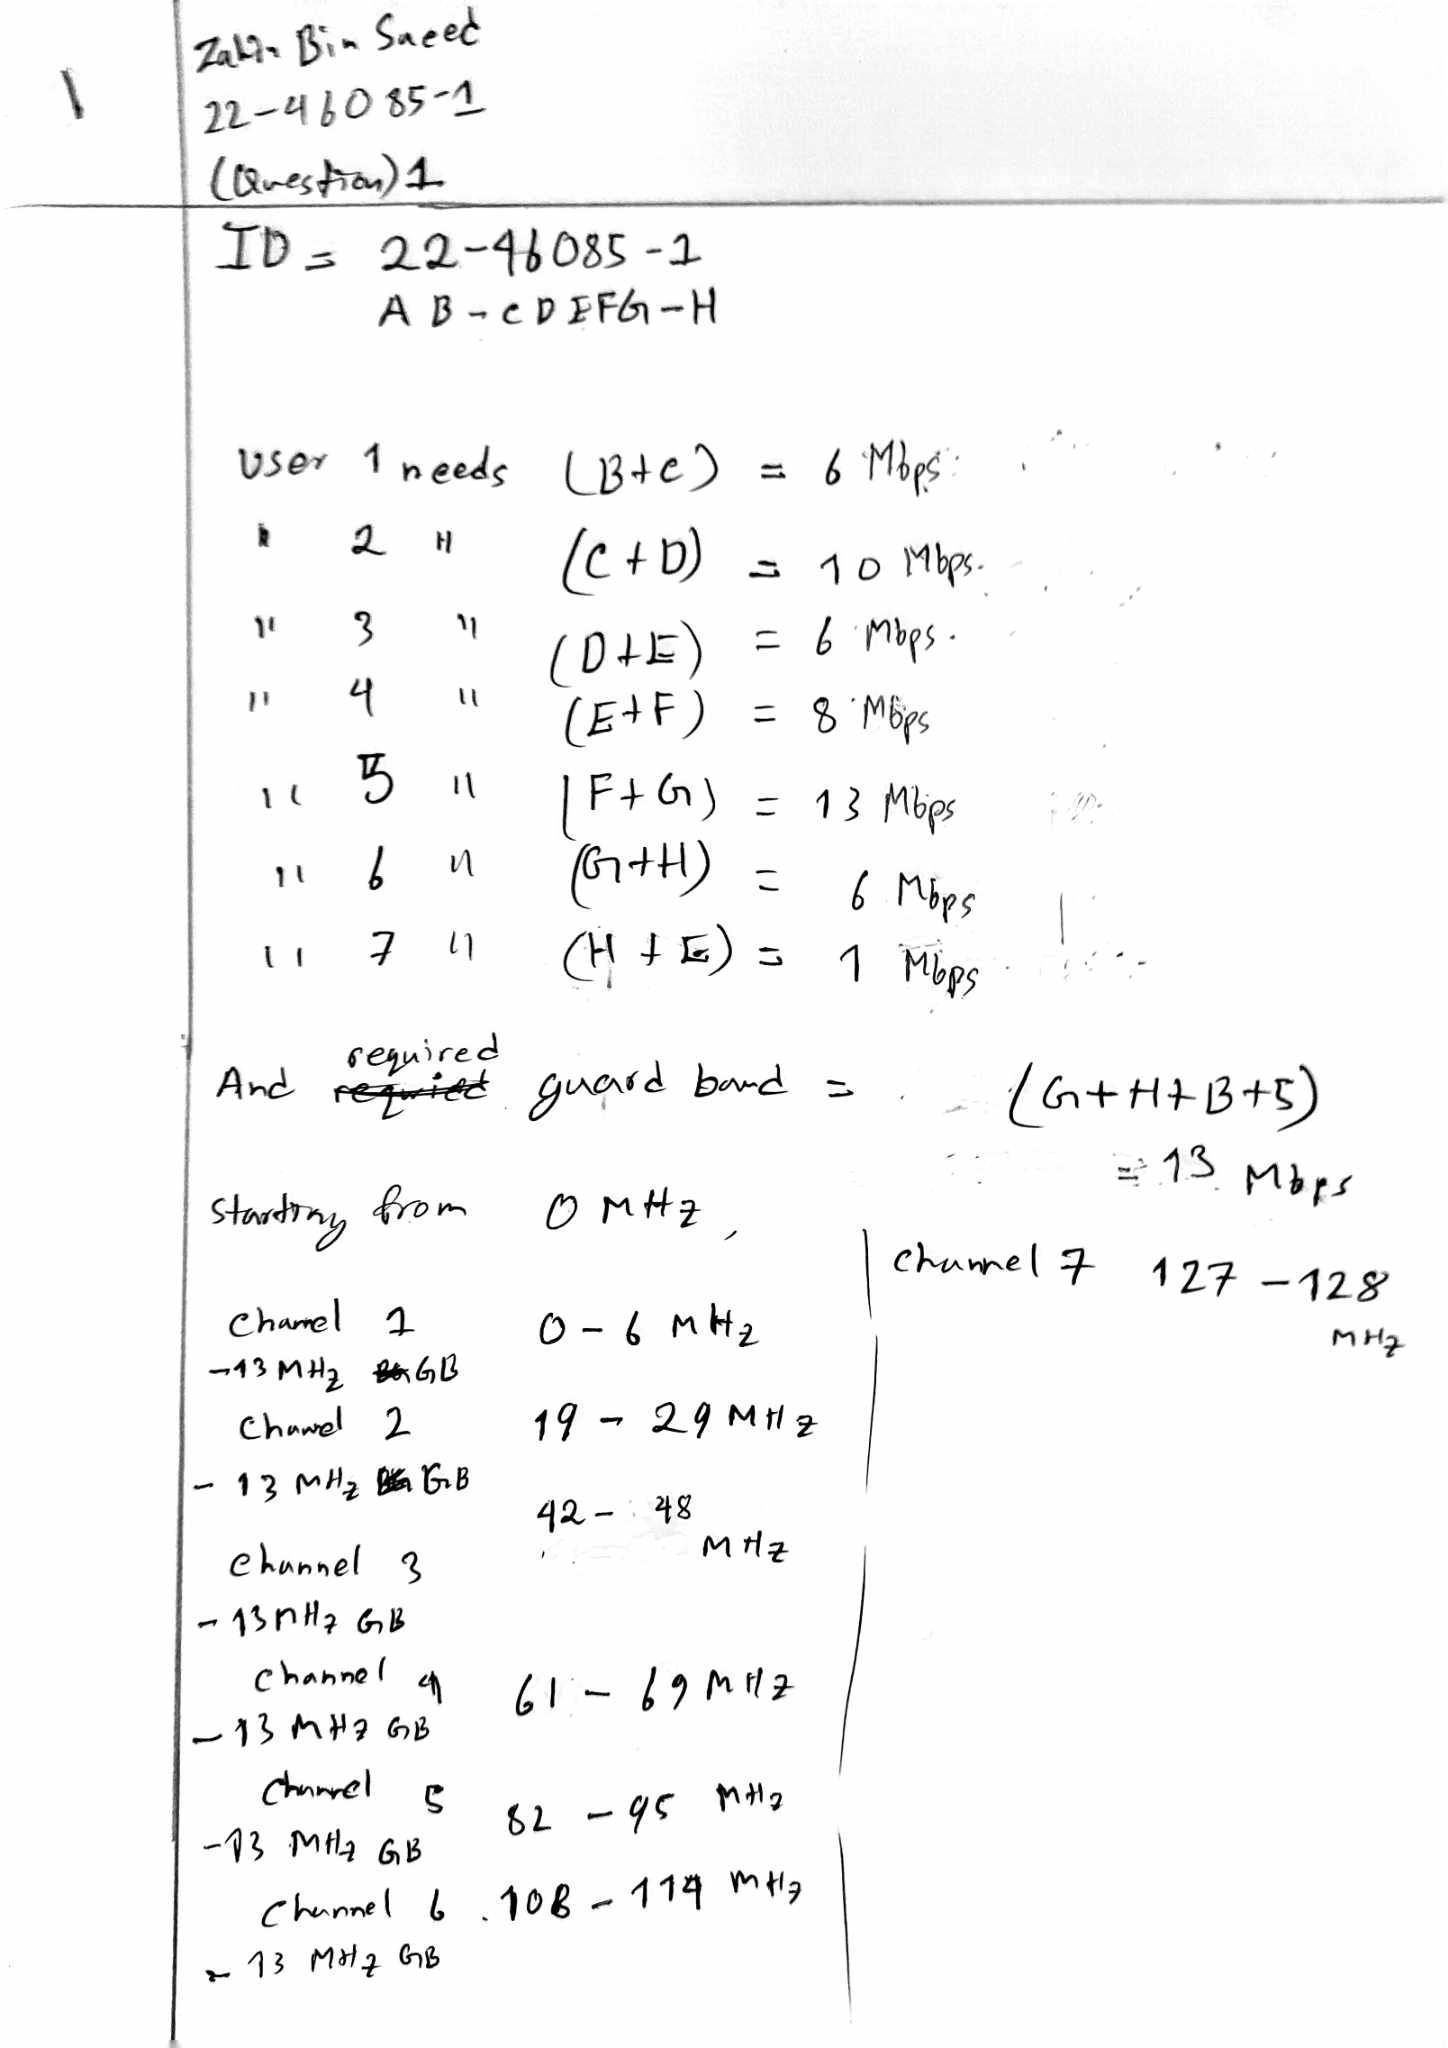 1
Zahin Bin Saeed
22-46085-1
(Question) 1
ID = 22-46085-1
A B - C D E F G - H
User 1 needs (B+C) = 6 Mbps
" 2 " (C+D) = 10 Mbps.
" 3 " (D+E) = 6 Mbps.
" 4 " (E+F) = 8 Mbps
" 5 " (F+G) = 13 Mbps
" 6 " (G+H) = 6 Mbps
" 7 " (H+E) = 1 Mbps
And required guard band = (G+H+B+5)
= 13 Mbps
Starting from 0 MHz,
Channel 1 0-6 MHz
-13 MHz GB
Channel 2 19 - 29 MHz
- 13 MHz GB
Channel 3 42 - 48 MHz
- 13 MHz GB
Channel 4 61 - 69 MHz
- 13 MHz GB
Channel 5 82 - 95 MHz
- 13 MHz GB
Channel 6 108 - 114 MHz
- 13 MHz GB
Channel 7 127 - 128
MHz